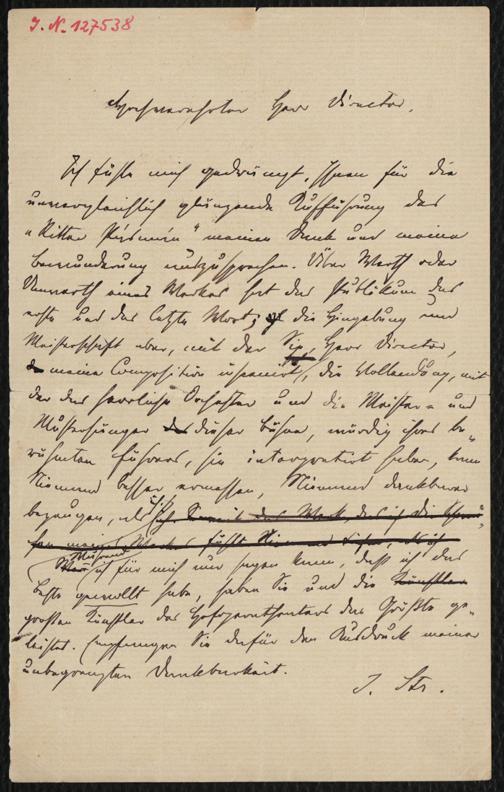 J. N. 127538
Hochverehrter Herr Director,
Ich fühle mich gedrungt, Ihnen für die
unvergleichlich glänzende Aufführung des
"Ritter Pásmán" meinen Dank und meine
Bewunderung auszusprechen. Über Werth oder
Unwerth eines Werkes hat das Publikum das
erste und das letzte Wort; die Hingebung und
Meisterschaft aber, mit der Sie, Herr Director,
meine Composition inscenirt, die Vollendung, mit
der das herrliche Orchester und die Meister- und
Mustersänger dieser Bühne, würdig ihres be-
rühmten Führers, sie interpretirt haben, kann
Niemand besser ermessen, Niemand dankbarer
bezeugen, als ich
Während ich für mich nur sagen kann, daß ich das
Beste gewollt habe, haben Sie und die Künstler
großen Künstler des Hofoperntheaters das Größte ge-
leistet. Empfangen Sie dafür den Ausdruck meiner
unbegrenzten Dankbarkeit.
J. Str.